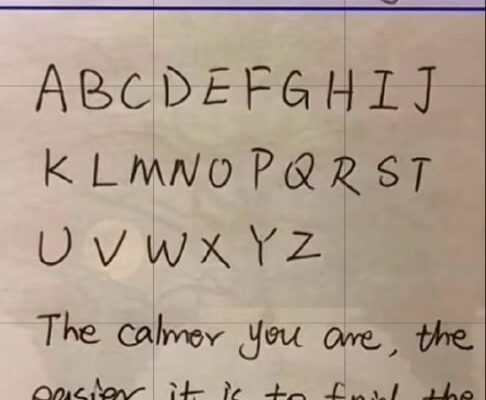 A B C D E F G H I J
K L M N O P Q R S T
U V W X Y Z
The calmer you are, the
easier it is to find the